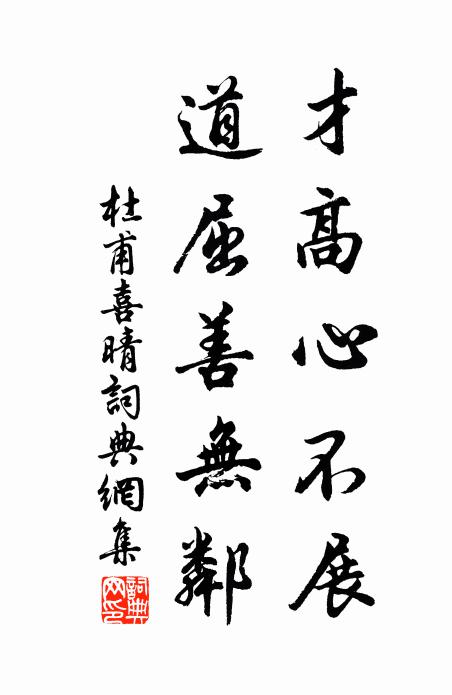 才高心不展
道屈善無鄰
杜甫喜晴詞典網集
詞典網印